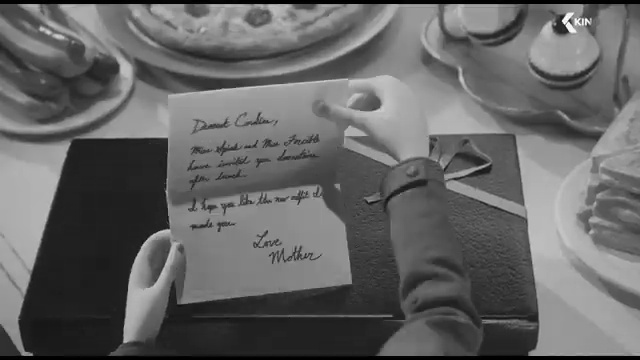 KIN
Dearest Coraline,
Miss Spink and Miss Forcible
have invited you downstairs
after lunch.
I hope you like the new outfit I
made you.
Love
Mother